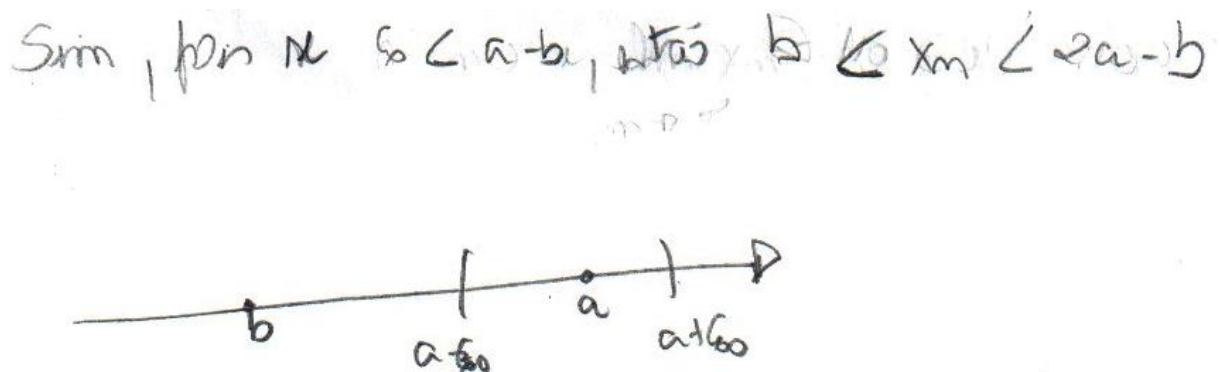 Sim, pois se ε₀ < a-b, então b < xₙ < 2a-b
b a-ε₀ a a+ε₀